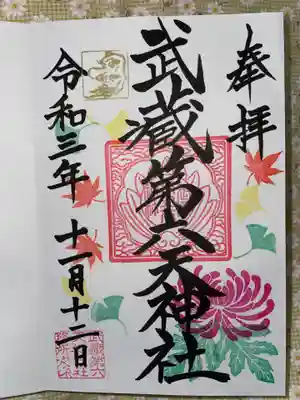 奉拝
武蔵第六天神社
令和三年 十一月十二日